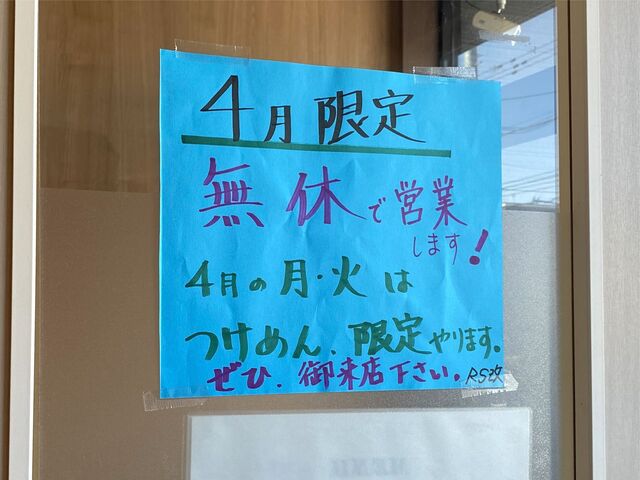 4月限定
無休で営業
します!
4月の月・火は
つけめん、限定やります。
ぜひ、御来店下さい。RS改
MENU